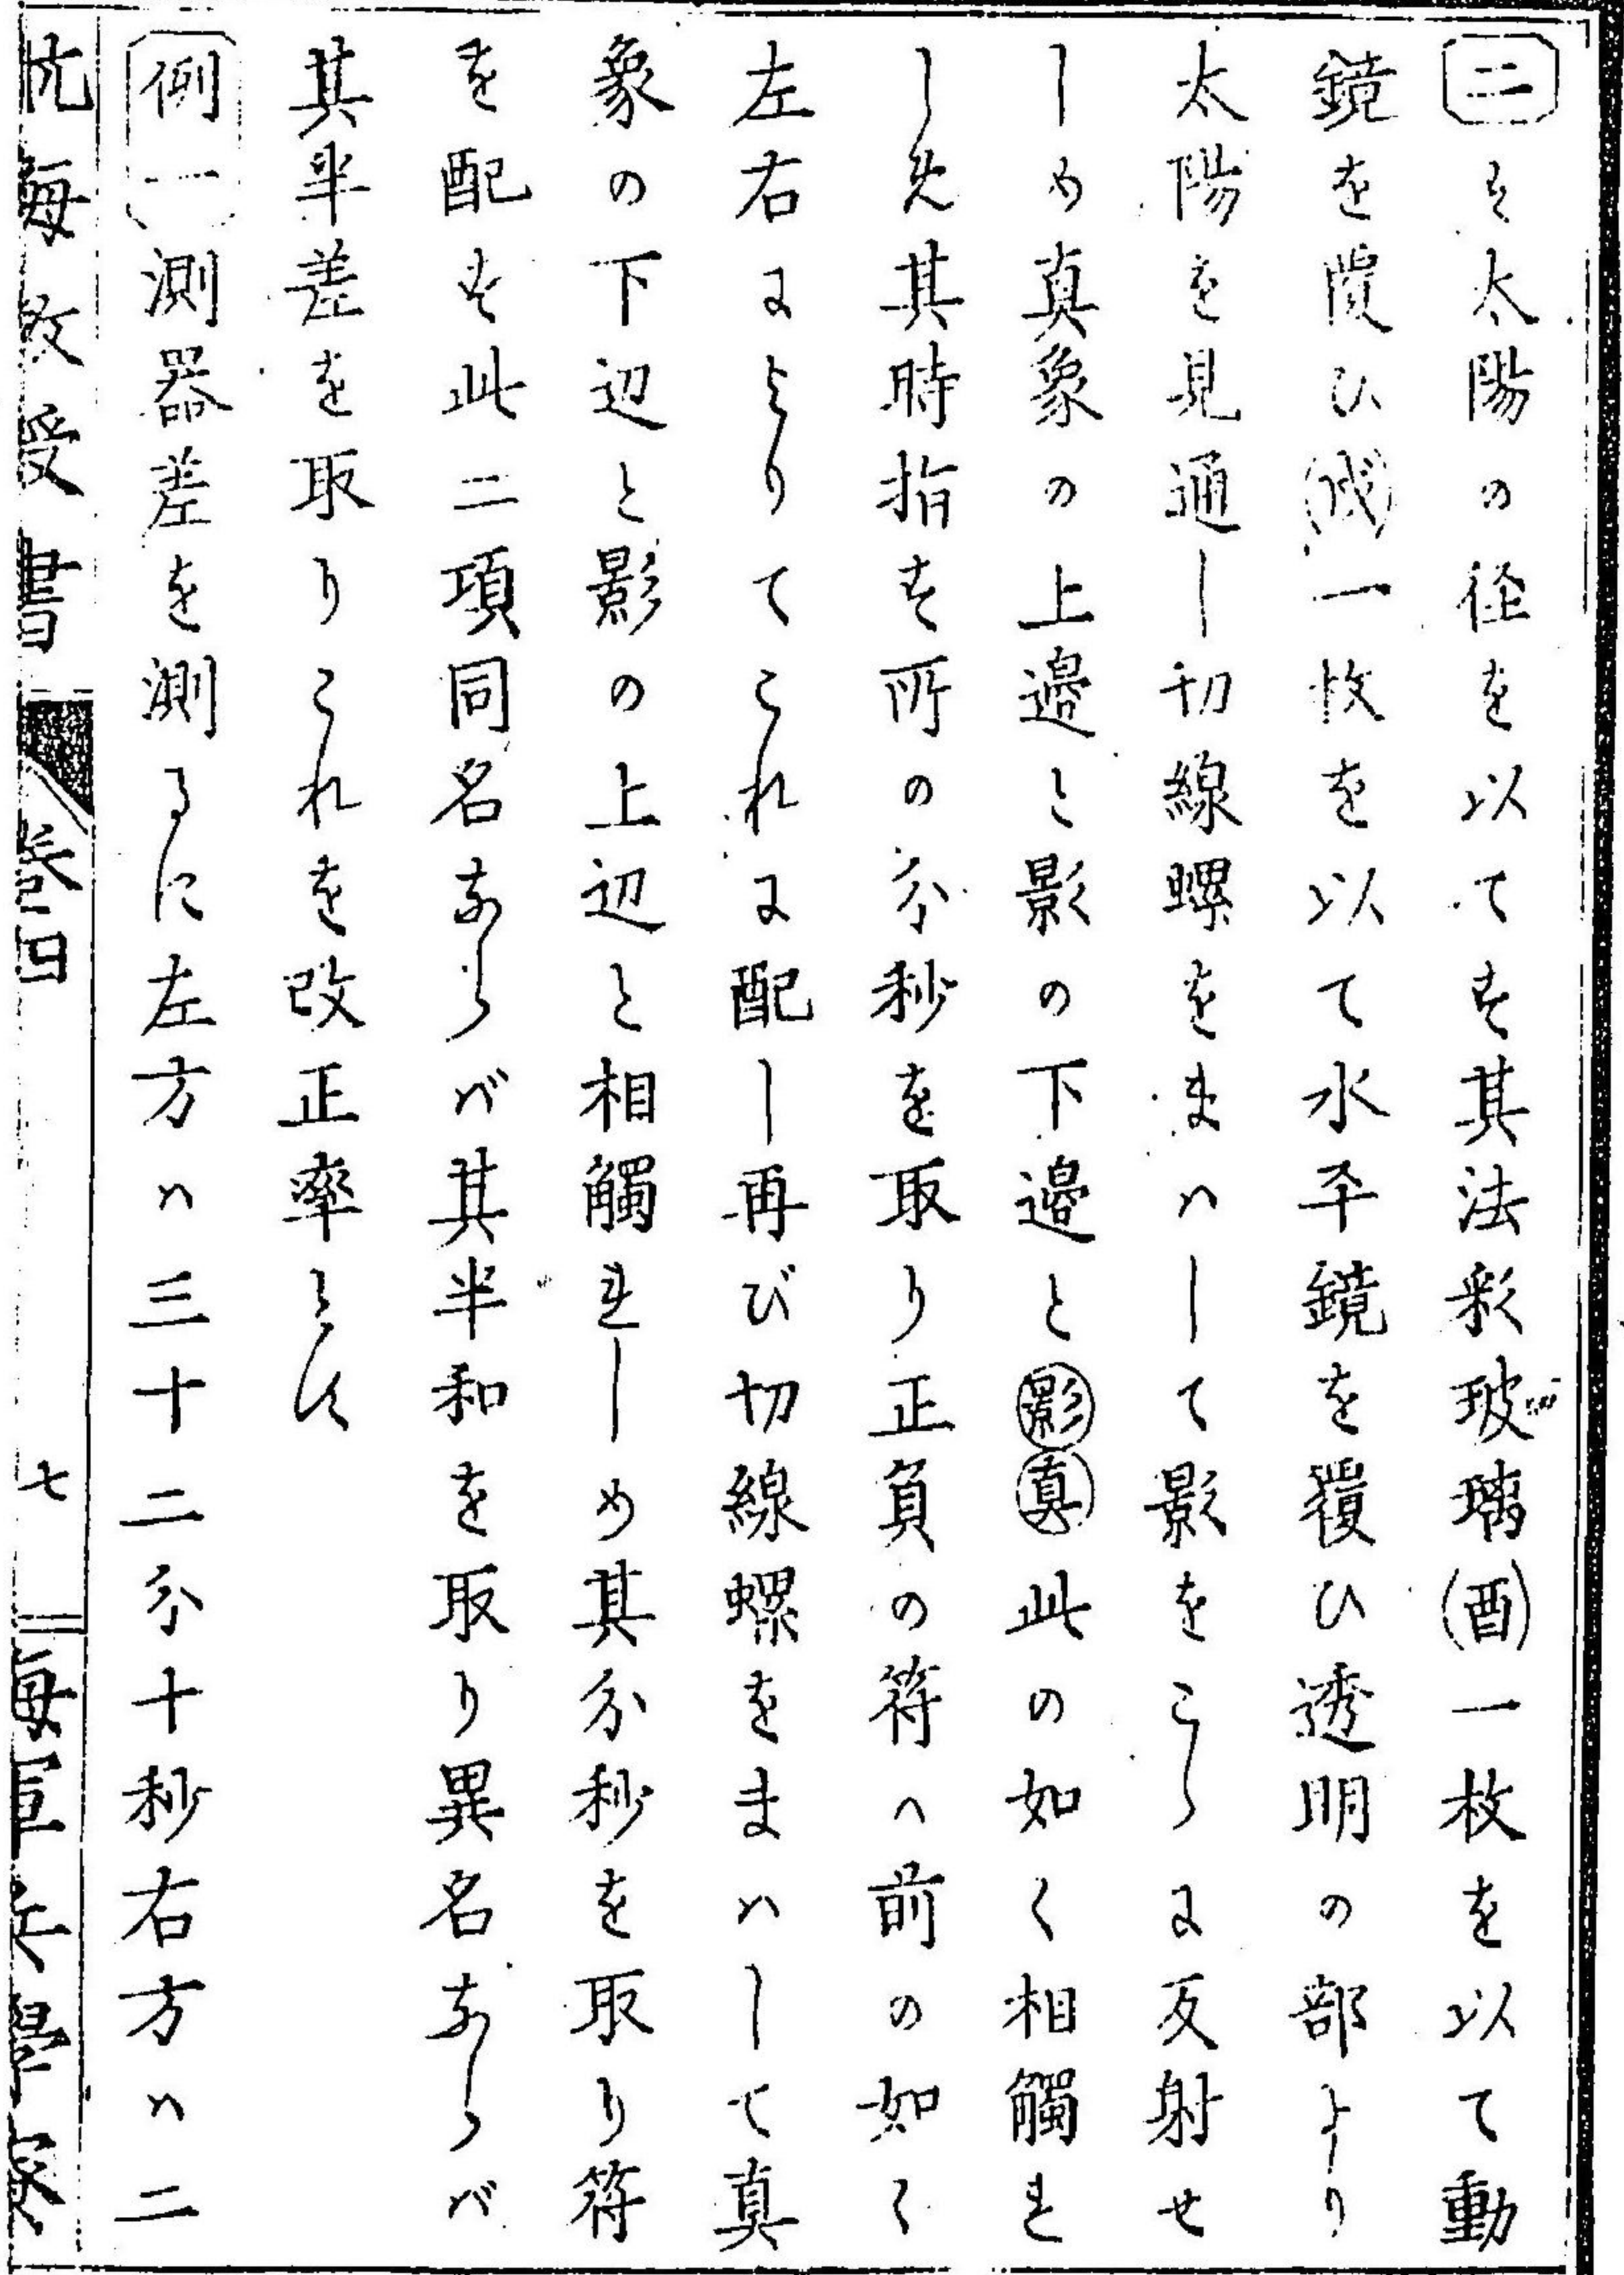 二 ハ太陽の径を以てす其法彩玻璃(酉)一枚を以て動
鏡を覆ひ(戌)一枚を以て水平鏡を覆ひ透明の部より
太陽を見通し切線螺をまハして影をこらに反射せ
しめ真象の上邊と影の下邊と影真此の如く相觸れ
しめ其時指す所の分秒を取り正負の符ハ前の如く
左右によりてこれに配し再び切線螺をまハして真
象の下辺と影の上辺と相觸れしめ其分秒を取り符
を配す此二項同名ならバ其半和を取り異名ならバ
其半差を取りこれを改正率とす
例一 測器差を測るに左方ハ三十二分十秒右方ハ二
航海教授書 巻四 七 海軍兵學寮